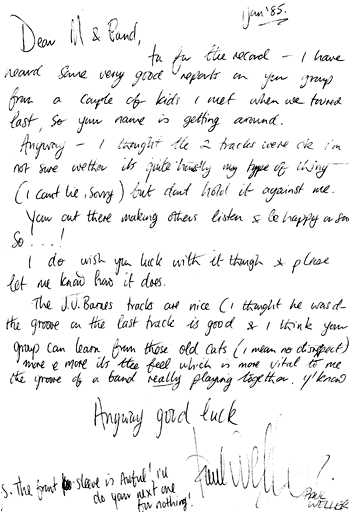 1 Jan '85.
Dear M & Band,
ta for the record – I have
heard some very good reports on your group
from a couple of kids I met when we toured
last, so your name is getting around.
Anyway – I thought the 2 tracks were ok i'm
not sure wether its quite honestly my type of thing –
(I can't lie, sorry) but dont hold it against me.
Your out there making others listen & be happy or
So . . . . !
I do wish you luck with it though & please
let me know how it does.
The J.J. Barnes tracks are nice (I thought he was
the groove on the last track is good & I think your
group can learn from those old cats (I mean no disrespect)
more & more its the feel which is more vital to me
the groove of a band really playing together. y'know
Anyway good luck
Paul Weller
s. The front sleeve is Awful! i'll
do your next one
for nothing!
PAUL
WELLER